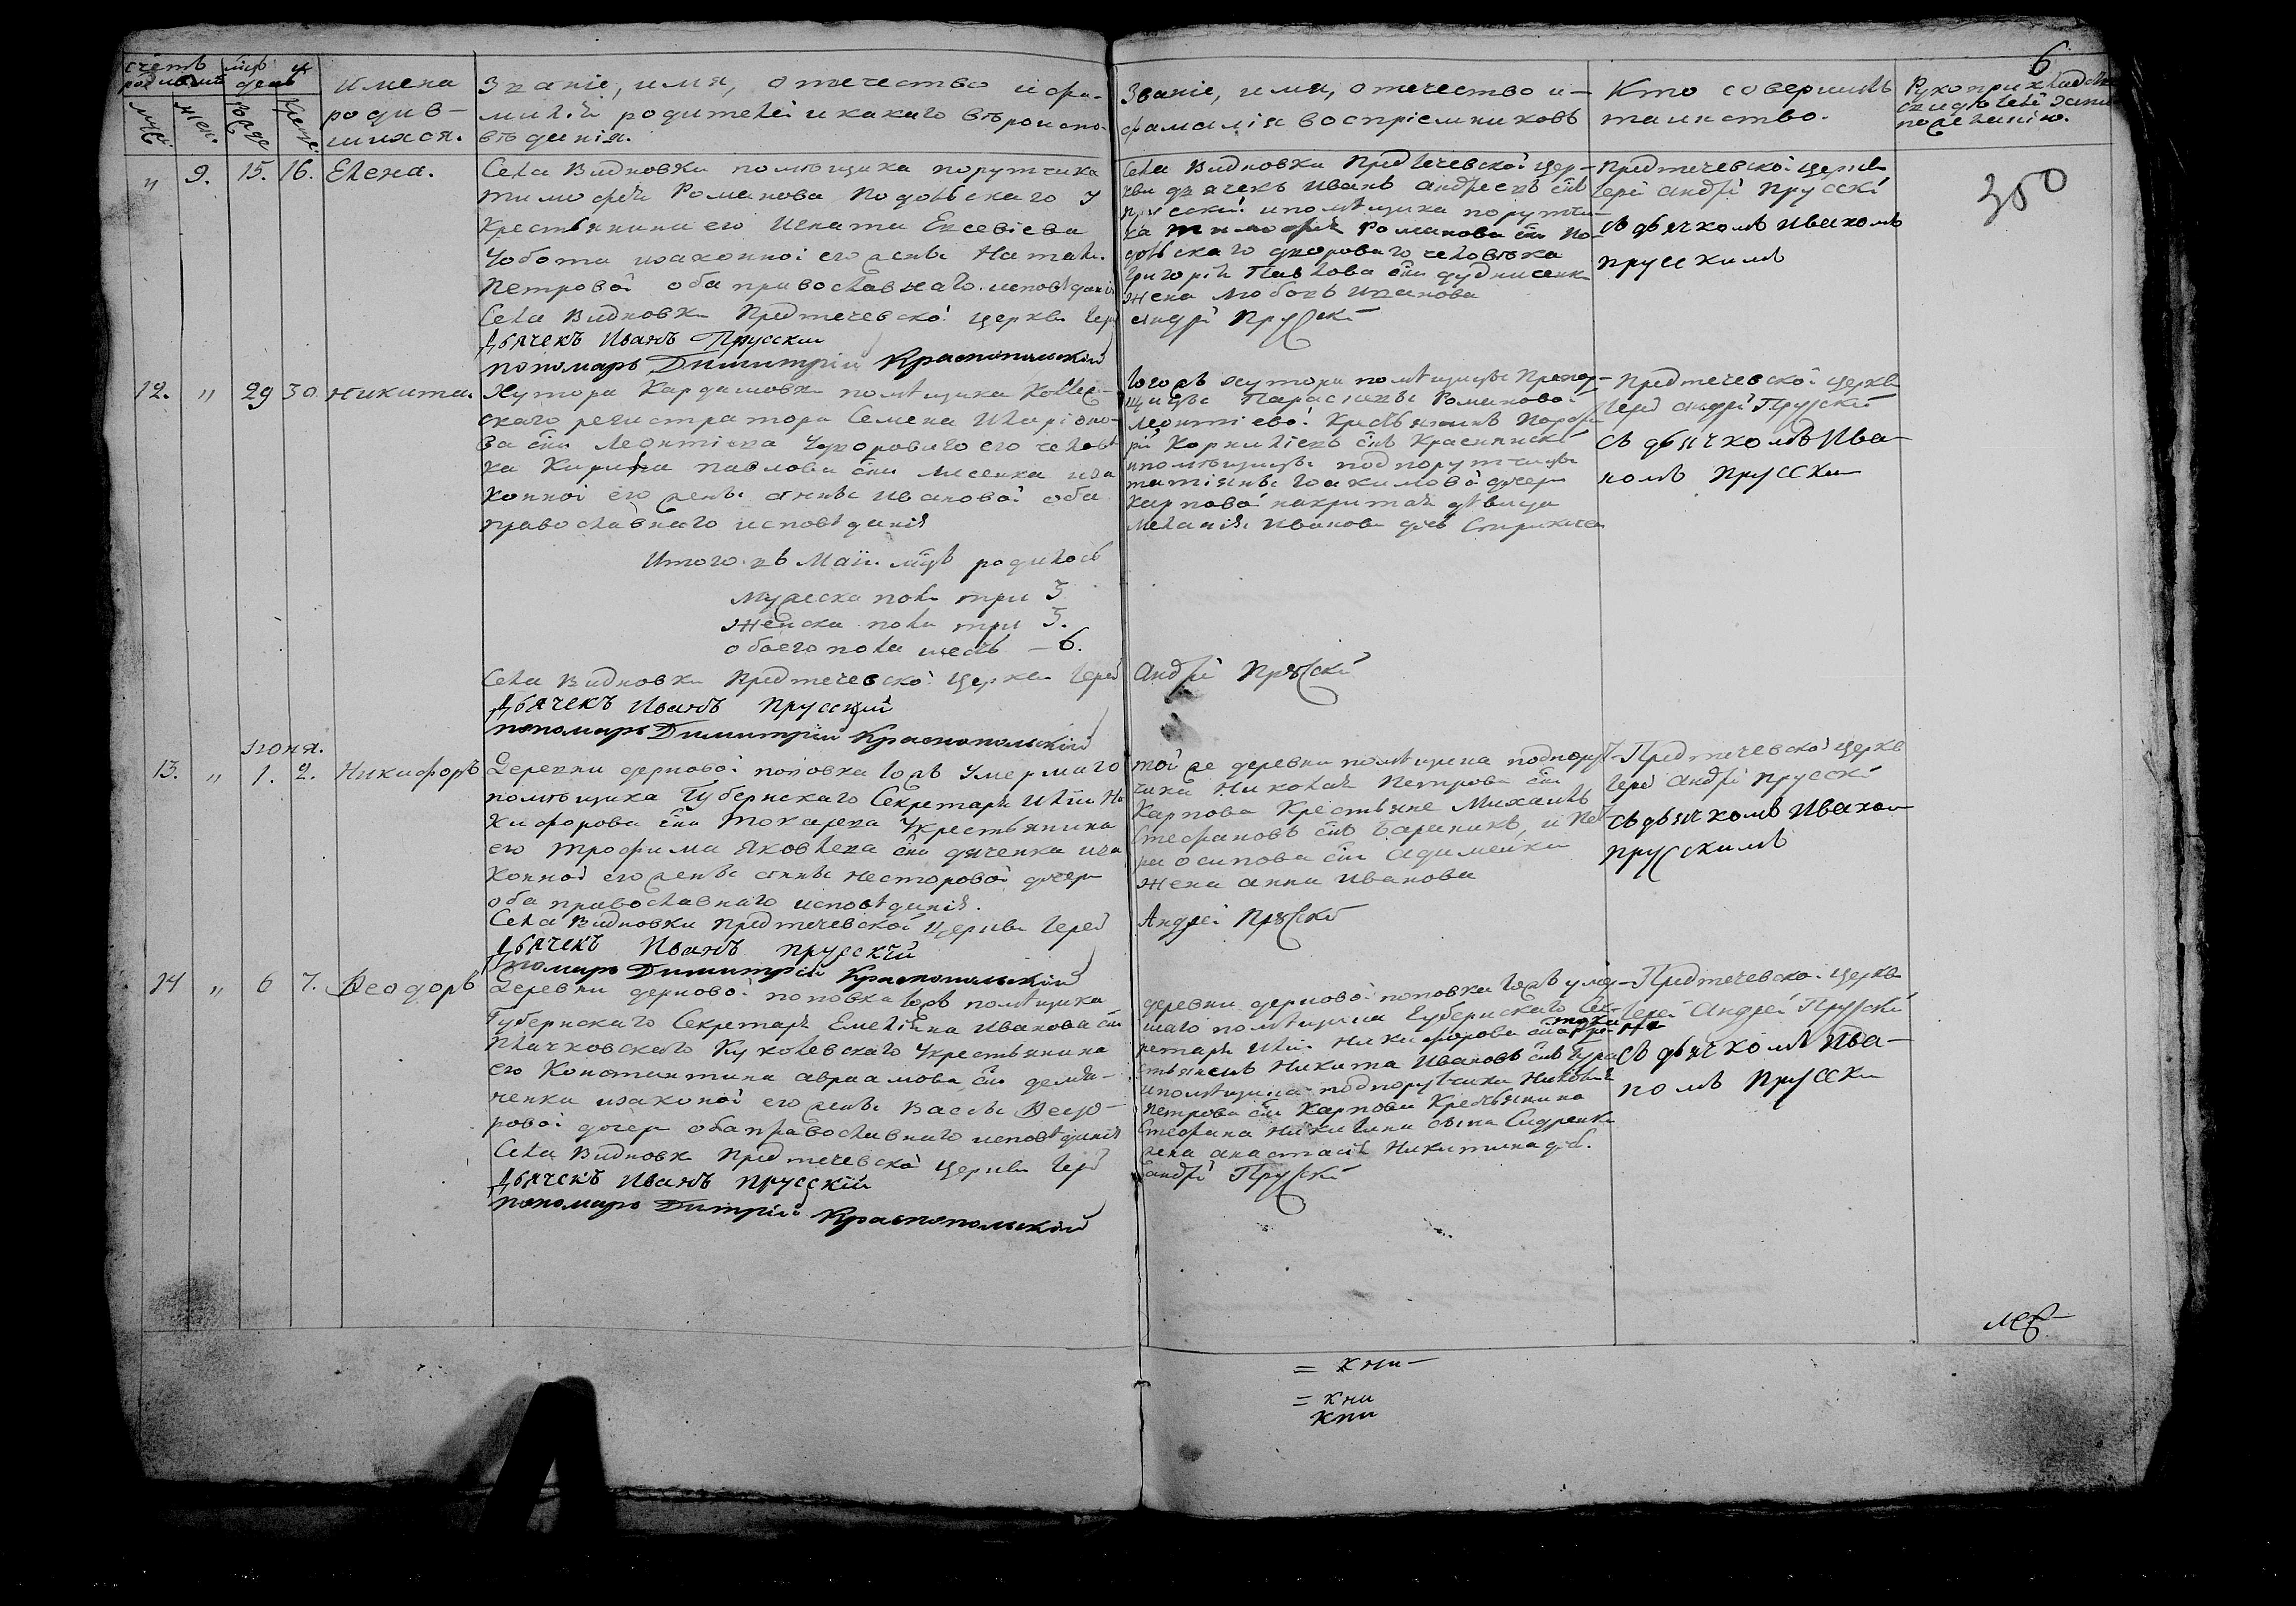 6
счетъ родившихся
мѣсяцъ и день
имена родив-
шихся.
Званіе, имя, отечество и фа-
милія родителей и какаго вѣроиспо-
вѣданія.
Званіе, имя, отечество и
фамилія воспріемниковъ
Кто совершилъ
таинство.
Рукоприкладство
свидѣтелей записи
по желанію.
" 9. 15. 16. Елена.
Села Видновки помѣщика порутчика
Тимофея Романова Подольскаго у
Крестьянина его Игната Евсевіева
Чобота и законной его жены Наталіи
Петровой оба православнаго исповѣданія
Села Видновки Предтечевской церкви Іерей
Дьячекъ Иванъ Прусскій
пономарь Димитрій Краснопольскій
Села Видновки Предтечевской цер-
кви дьячекъ Иванъ Андреевъ сынъ
Прусскій и помѣщика порутчи-
ка Тимофея Романова сына По-
дольскаго двороваго человѣка
Григорія Павлова сына
жена Любовь Иванова
Андрей Прусскій
Предтечевской церкви
Іерей Андрей Прусскій
съ дьячкомъ Иваномъ
Прусскимъ
350
12. " 29 30 Никита.
Хутора Кардашовки помѣщика Коллеж-
скаго регистратора Семена Иларіоно-
ва сына Леонтіева у двороваго его человѣ-
ка Кирила Павлова сына Лисенка и за
конной его жены Анны Ивановой оба
православнаго исповѣданія
Тогожъ хутора помѣщицы Прапор-
щицы Параскевы Романовой
Леонтіевой Крестьянинъ
Корниліевъ сынъ
и помѣщицы подпорутчицы
Татіяны Іоакимовой дочери
Карповой дѣвица
Меланія Иванова дочь
Предтечевской церкви
Іерей Андрей Прусскій
съ дьячкомъ Ива-
номъ Прусским
Итого въ Маіи мѣсяцѣ родилось
мужеска пола три 3
женска пола три 3.
обоего пола шесть – 6.
Села Видновки Предтечевской церкви Іерей Андрей Прусскій
Дьячекъ Иванъ Прусскій
пономарь Димитрій Краснопольскій
Іюня.
13. " 1. 2. Никифоръ
Деревни Дерновой Поповка тожъ умершаго
помѣщика Губернскаго Секретаря Ильи Ни
кифорова сына Токарева у крестьянина
его Трофима Яковлева сына Дяченка и за
конной его жены Анны Несторовой дочери
оба православнаго исповѣданія.
Села Видновки Предтечевской церкви Іерей
Дьячекъ Иванъ Прусскій
пономарь Димитрій Краснопольскій
той же деревни помѣщика подпорут-
чика Николая Петрова сына
Карпова Крестьяне Михаилъ
Стефановъ сынъ Бараникъ, и Пет
ра Осипова сына
жена Анна Иванова
Андрей Прусскій
Предтечевской церкви
Іерей Андрей Прусскій
съ дьячкомъ Иваном
Прусскимъ
14 " 6 7. Ѳеодоръ
Деревни Дерновой Поповка тожъ помѣщика
Губернскаго Секретаря Емеліяна Иванова сына
Плачковскаго у крестьянина
его Константина Авраамова сына Демя-
ченка и законой его жены Васы Ѳедо-
ровой дочери оба православнаго исповѣданія
Села Видновки Предтечевской церкви Іерей
Дьячекъ Иванъ Прусскій
пономарь Димтрій Краснопольскій
деревни Дерновой Поповка тожъ умер-
шаго помѣщика Губернскаго Сек-
ретаря Ильи Никифорова сына
Никита Ивановъ сынъ
и помѣщика подпорутчика Николая
Петрова сына Карпова Крестьянина
Стефана Никитина сына Сидренка
жена Анастасія Никитина доч.
Андрей Прусскій
Предтечевской церкви
Іерей Андрей Прусскій
съ дьячкомъ Ива-
номъ Прусски
= кни-
= кни
кни